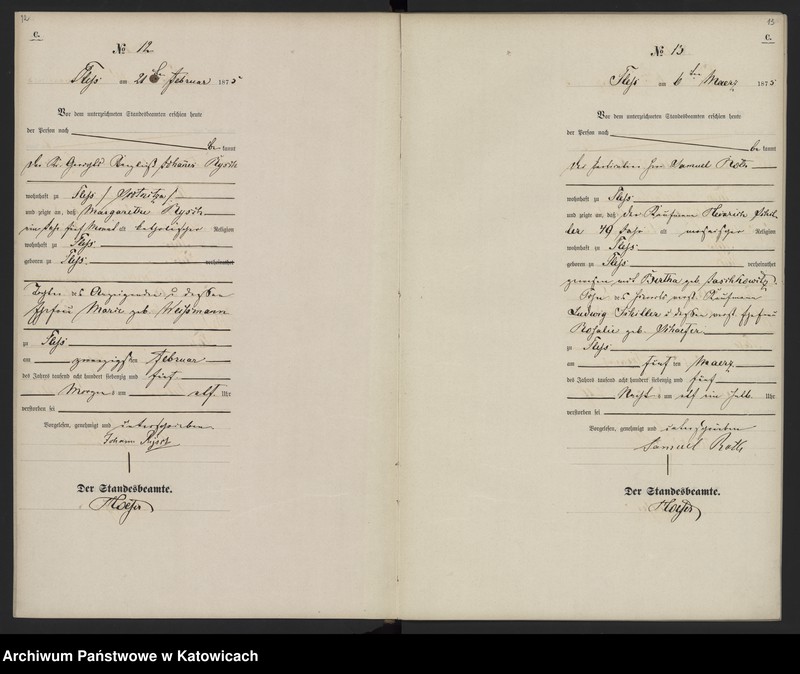 12
C.
№ 12
Pless am 21 ten Februar 1875
Vor dem unterzeichneten Standesbeamten erschien heute
der Person nach
be kannt
der
wohnhaft zu Pless
und zeigte an, daß Margarethe
ein Jahr fünf Monat alt katholischer Religion
wohnhaft zu Pless
geboren zu Pless verheirathet
Tochter des Anzeigenden u dessen
Ehefrau Marie geb. Weissmann
zu Pless
am zwanzigsten Februar
des Jahres tausend acht hundert siebenzig und fünf
Morgens um elf Uhr
verstorben sei
Vorgelesen, genehmigt und unterschrieben
Johann
Der Standesbeamte.
Hoefer
13
C.
№ 13
Pless am 6 ten Maerz 1875
Vor dem unterzeichneten Standesbeamten erschien heute
der Person nach
be kannt
der Herr Samuel Roth
wohnhaft zu Pless
und zeigte an, daß der Kaufmann Heinrich Schil-
ler 49 Jahr alt mosaischer Religion
wohnhaft zu Pless
geboren zu Pless verheirathet
gewesen mit Bertha geb.
Sohn des Kaufmann
Ludwig Schiller u dessen Ehefrau
Rosalie geb. Schaefer
zu Pless
am fünf ten Maerz
des Jahres tausend acht hundert siebenzig und fünf
Nachts um elf ein halb Uhr
verstorben sei
Vorgelesen, genehmigt und unterschrieben
Samuel Roth
Der Standesbeamte.
Hoefer
Archiwum Państwowe w Katowicach